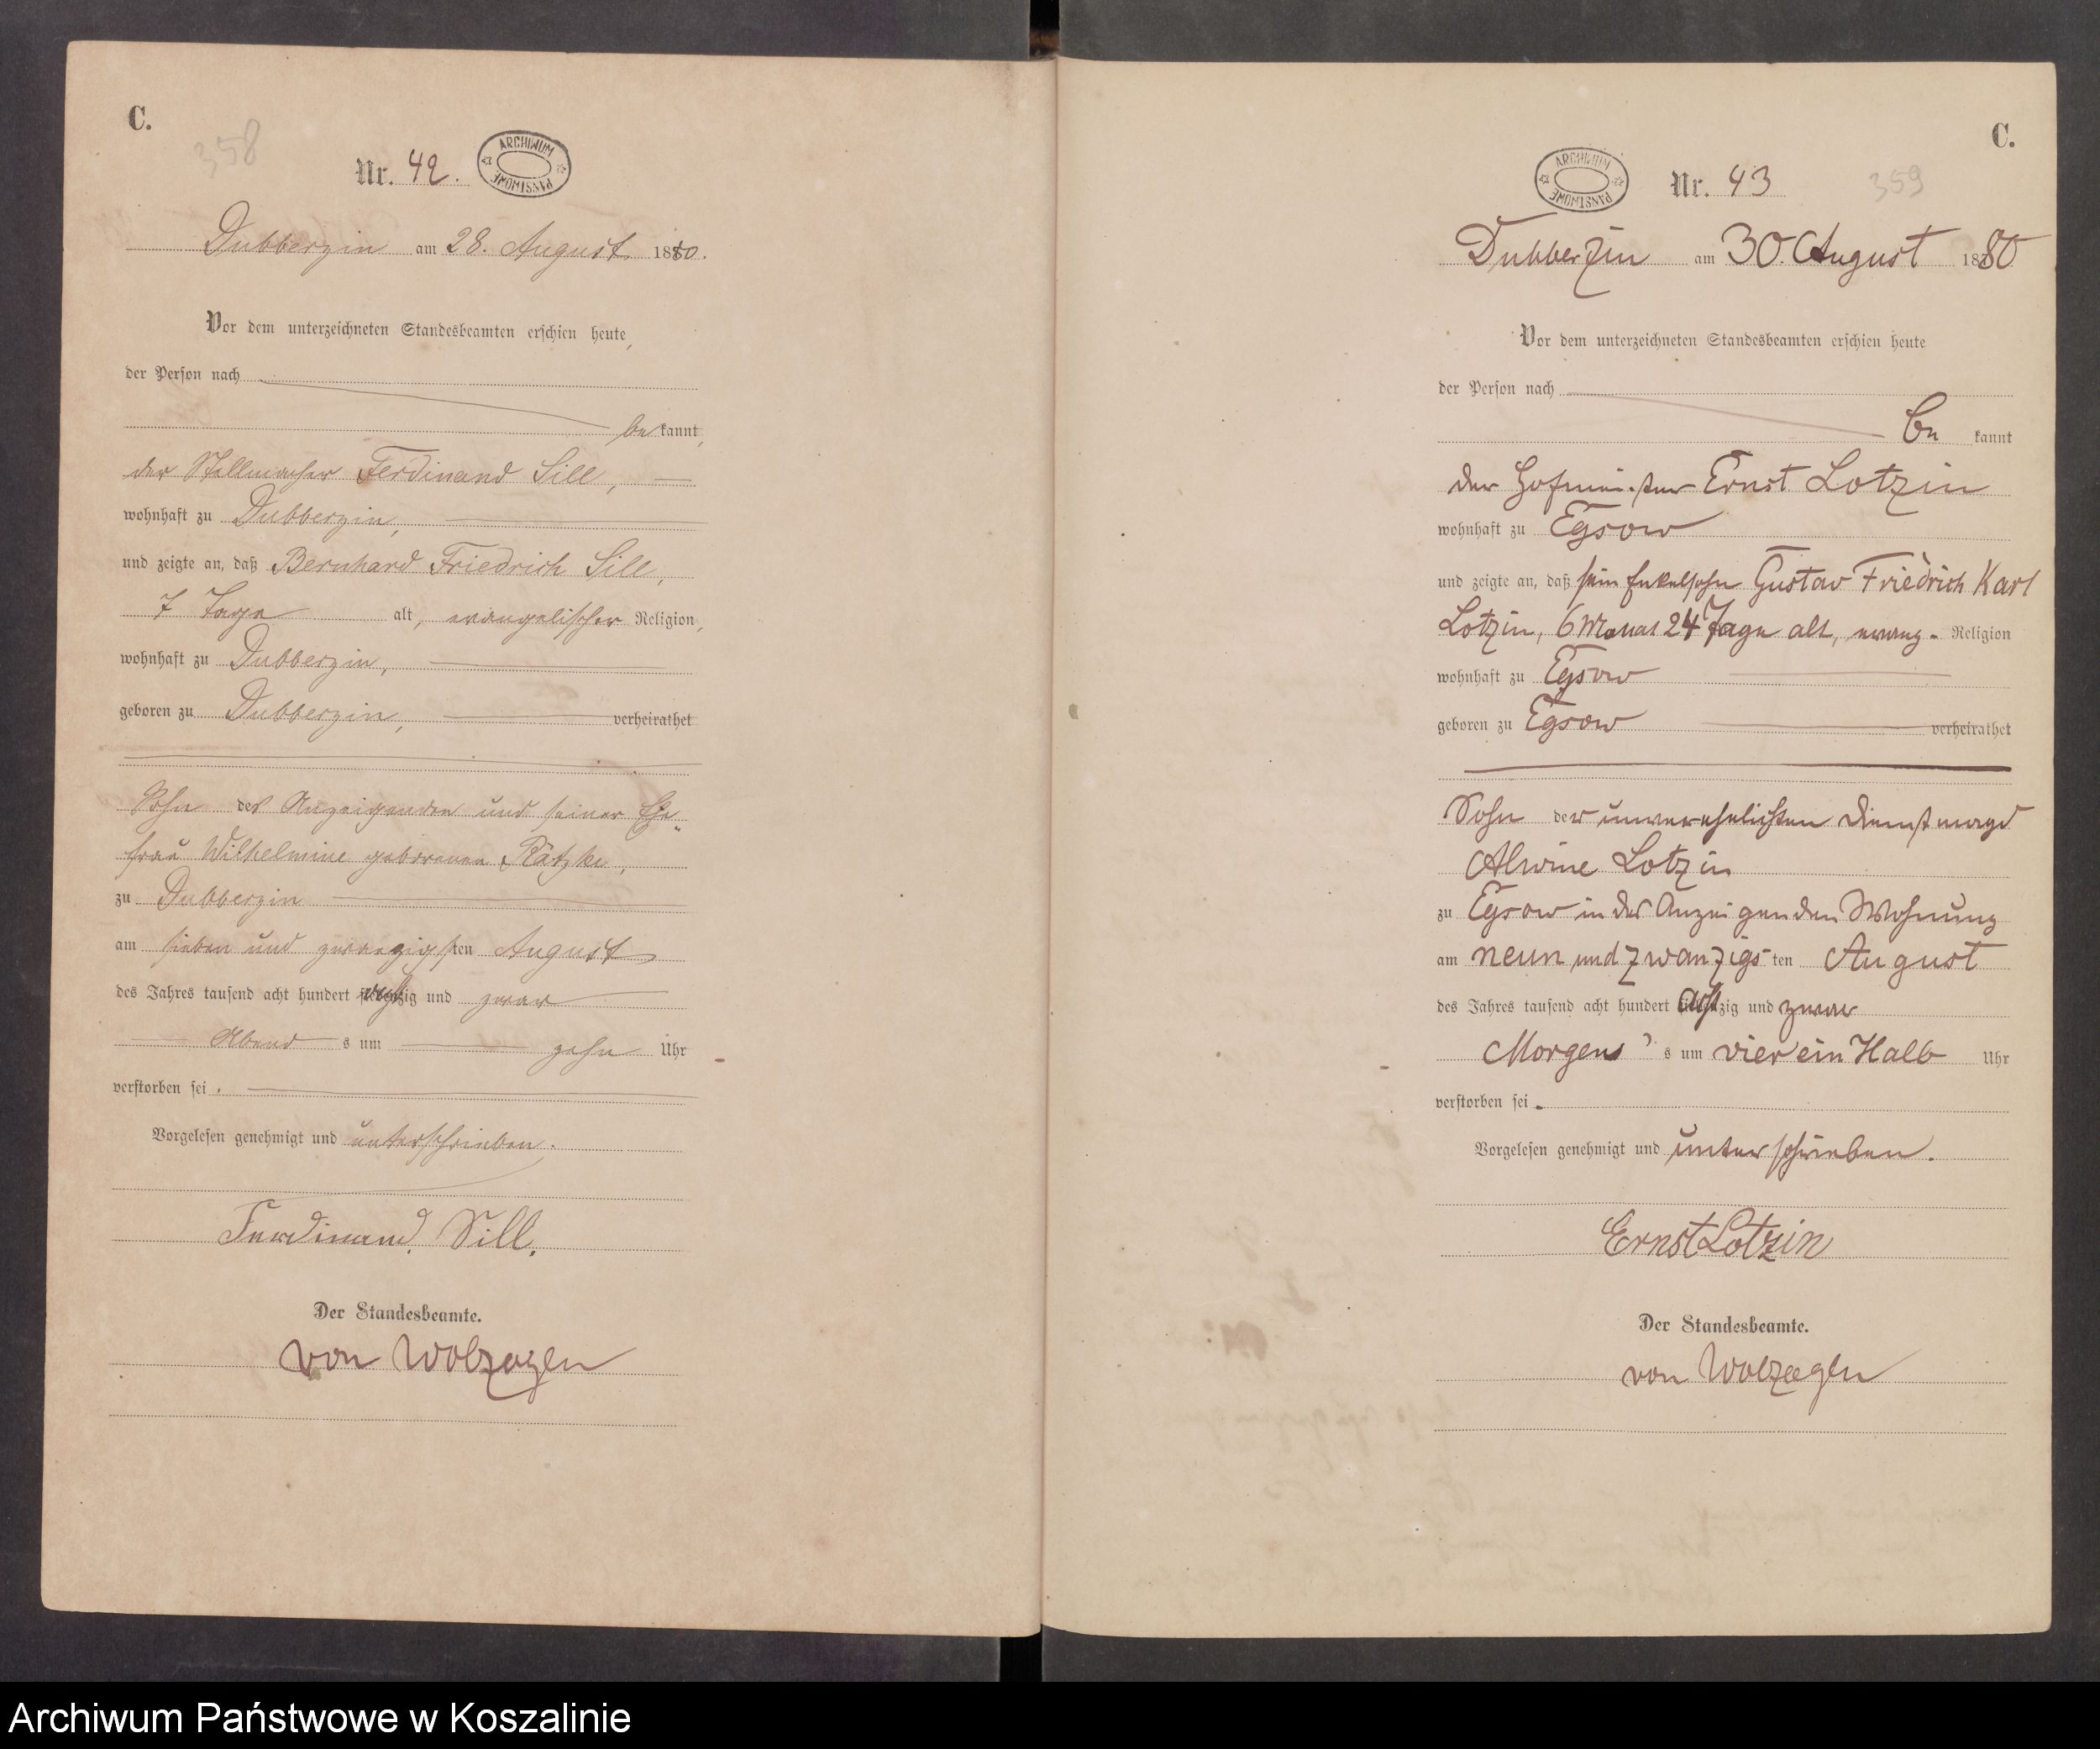 C.
358
Nr. 42.
ARCHIWUM PAŃSTWOWE
Dubberzin am 28. August 1880.
Vor dem unterzeichneten Standesbeamten erschien heute,
der Person nach
be kannt,
der Stellmacher Ferdinand Sill,
wohnhaft zu Dubberzin,
und zeigte an, daß Bernhard Friedrich Sill,
7 Tage alt, evangelischer Religion,
wohnhaft zu Dubberzin,
geboren zu Dubberzin, verheirathet
Sohn des Anzeigenden und seiner Ehe„
frau Wilhelmine geborenen Rätzke,
zu Dubberzin
am sieben und zwanzigsten August
des Jahres tausend acht hundert achtzig und zwar
Abend s um zehn Uhr
verstorben sei.
Vorgelesen genehmigt und unterschrieben.
Ferdinand Sill.
Der Standesbeamte.
von Wolzogen
C.
ARCHIWUM PAŃSTWOWE
Nr. 43
359
Dubberzin am 30. August 1880
Vor dem unterzeichneten Standesbeamten erschien heute
der Person nach
be kannt
der Hofmeister Ernst Lotzin
wohnhaft zu Egsow
und zeigte an, daß sein Enkelsohn Gustav Friedrich Karl
Lotzin, 6 Monat 24 Tage alt, evang. Religion
wohnhaft zu Egsow
geboren zu Egsow verheirathet
Sohn der unverehelichten Dienstmagd
Alwine Lotzin
zu Egsow in des Anzeigenden Wohnung
am neun und zwanzigs ten August
des Jahres tausend acht hundert achtzig und zwar
Morgens s um vier ein Halb Uhr
verstorben sei.
Vorgelesen genehmigt und unterschrieben.
Ernst Lotzin
Der Standesbeamte.
von Wolzogen
Archiwum Państwowe w Koszalinie